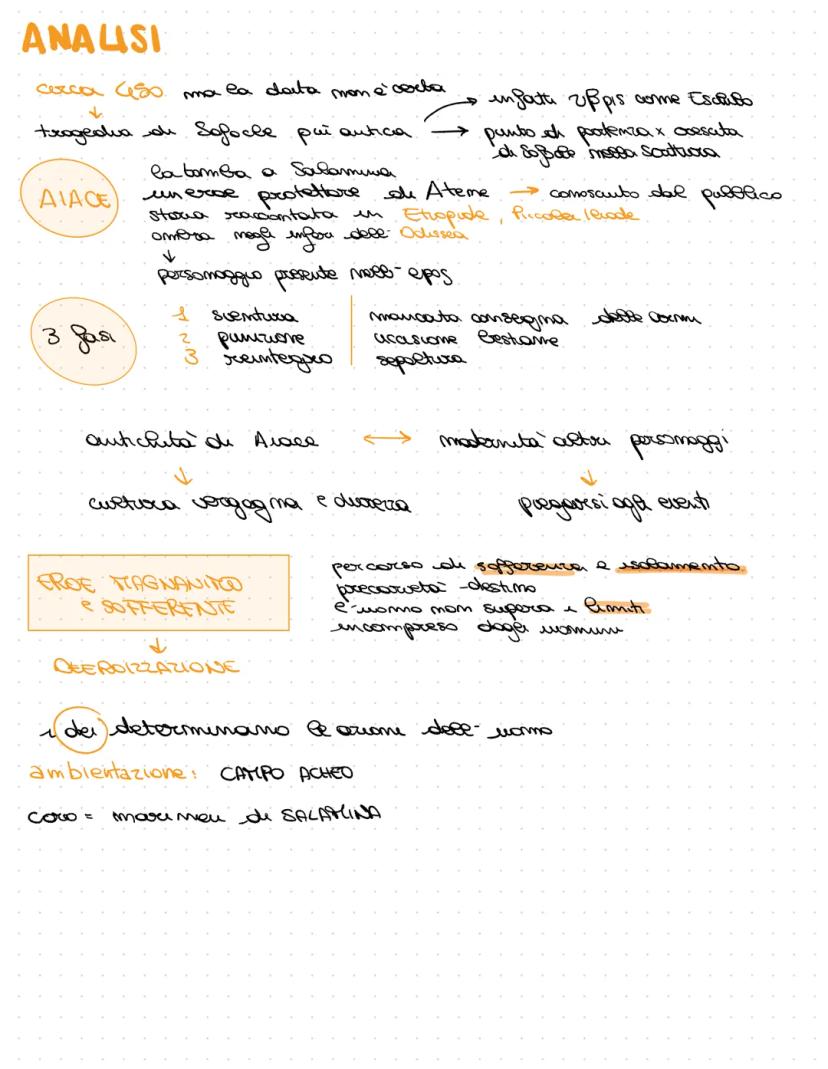 ANALISI
circa 450 ma la data non è certa
infatti ὕβρις come Eschilo
tragedia di Sofocle più antica → punto di partenza x crescita
di Sofocle nella scrittura
la tomba a Salamina
AIACE
un eroe protettore di Atene → conosciuto dal pubblico
storia raccontata in Etiopide, Piccola Iliade
ombra negli inferi dell'Odissea
personaggio presente nell'epos
3 fasi
1 sventura | mancata consegna delle armi
2 punizione | uccisione bestiame
3 reintegro | sepoltura
antichità di Aiace ↔ modernità altri personaggi
cultura vergogna e durezza
piegarsi agli eventi
EROE MAGNANIMO
e SOFFERENTE
DEEROIZZAZIONE
percorso di sofferenza e isolamento
precarietà destino
l'uomo non supera i limiti
incompreso dagli uomini
i dei determinano le azioni dell'uomo
ambientazione: CAMPO ACHEO
coro = marinai di SALAMINA